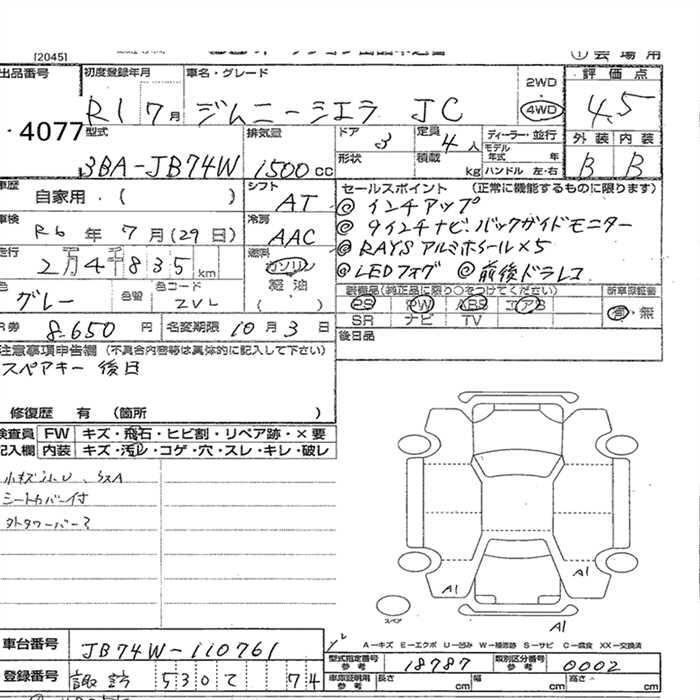 [2045]
会場用
出品番号 初度登録年月 車名・グレード 2WD 評価点
4077 R1 7月 ジムニーシエラ JC 4WD 4.5
型式 排気量 ドア 定員 ディーラー・並行 外装 内装
3BA-JB74W 1500cc 3 4人 モデル年式 年 B B
形状 積載 kg ハンドル 左・右
車歴 自家用・( ) シフト AT セールスポイント (正常に機能するものに限ります)
◎インチアップ
車検 R6年7月(29日) 冷房 AAC ◎9インチナビ.バックガイドモニター
走行 2万4千835km 燃料 ガソリン 軽油 ( ) ◎RAYSアルミホイール×5
◎LEDフォグ ◎前後ドラレコ
色 グレー 色替 色コード ZVL 装備品(純正品に限り○をつけてください) 新車保証書
PS PW ABS エアB 有・無
SR ナビ TV
R券 8.650円 名変期限 10月3日 後日品
注意事項申告欄 (不具合内容等は具体的に記入して下さい)
スペアキー後日
修復歴 有 (箇所 )
検査員 FW キズ・飛石・ヒビ割・リペア跡・×要
記入欄 内装 キズ・汚レ・コゲ・穴・スレ・キレ・破レ
シートカバー付
A1
A1
スペア
A1
A-キズ E-エクボ U-凹み W-補修跡 S-サビ C-腐食 XX-交換済
車台番号 JB74W-110761
型式指定番号 参考 18787 類別区分番号 参考 0002
登録番号 諏訪 530 て 74
車庫証明用 参考 長さ cm 幅 cm 高さ cm